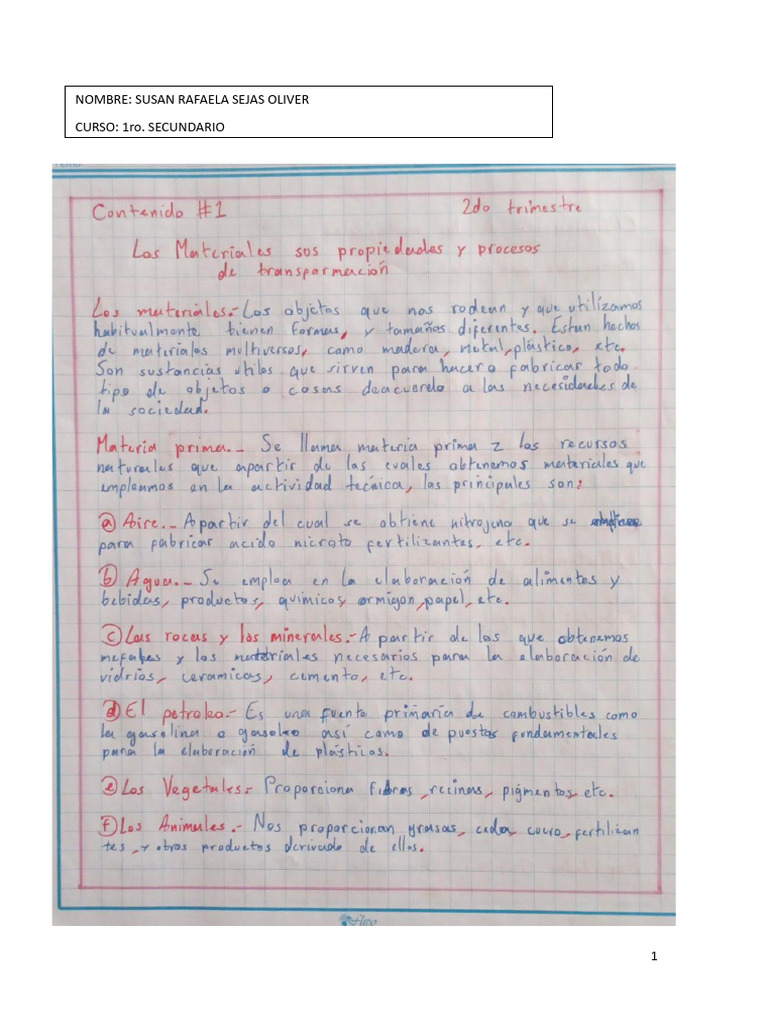 NOMBRE: SUSAN RAFAELA SEJAS OLIVER
CURSO: 1ro. SECUNDARIO
Contenido #1 2do trimestre
Los Materiales sos propiedades y procesos
de transparmación
Los materiales.- Los objetos que nos rodean y que utilízamos
habitualmonte tienen Formas, y tamaños diferentes. Estan hechos
de materialos multiversos, como madera, metal, plástico, etc.
Son sustancias utilos que sirven para hacer o fabricar todo
tipo de objetos o cosas deacuerdo a las necesidades de
la sociedad.
Materia prima.- Se llama materia prima z los recursos
naturalos que apartir de las cuales obtenemos materiales que
empleamos en la actividad tecnica, los principales son:
a) Aire.- Apartir del cual se obtiene nitrogeno que se
para fabricar acido nicroto fertilizantes, etc.
b) Agua.- Se emploa en la elaboración de alimentos y
bebidas, productos, quimicos, ormigon, papel, etc.
c) Las rocas y los minerales.- A partir de los que obtenemos
metales y los materiales necesarios para la elaboración de
vidrios, ceramicas, cemento, etc.
d) El petroleo.- Es una fuente primaria de combustibles como
la gasolina o gasoleo así como de puestos fundamentales
para la elaboración de plásticos.
e) Los Vegetales.- Proporciona fibras, recinas, pigmentos, etc.
f) Los Animales.- Nos proporcionan grasas, cuero, fertilizan
tes, y otros productos derivado de ellos.
1